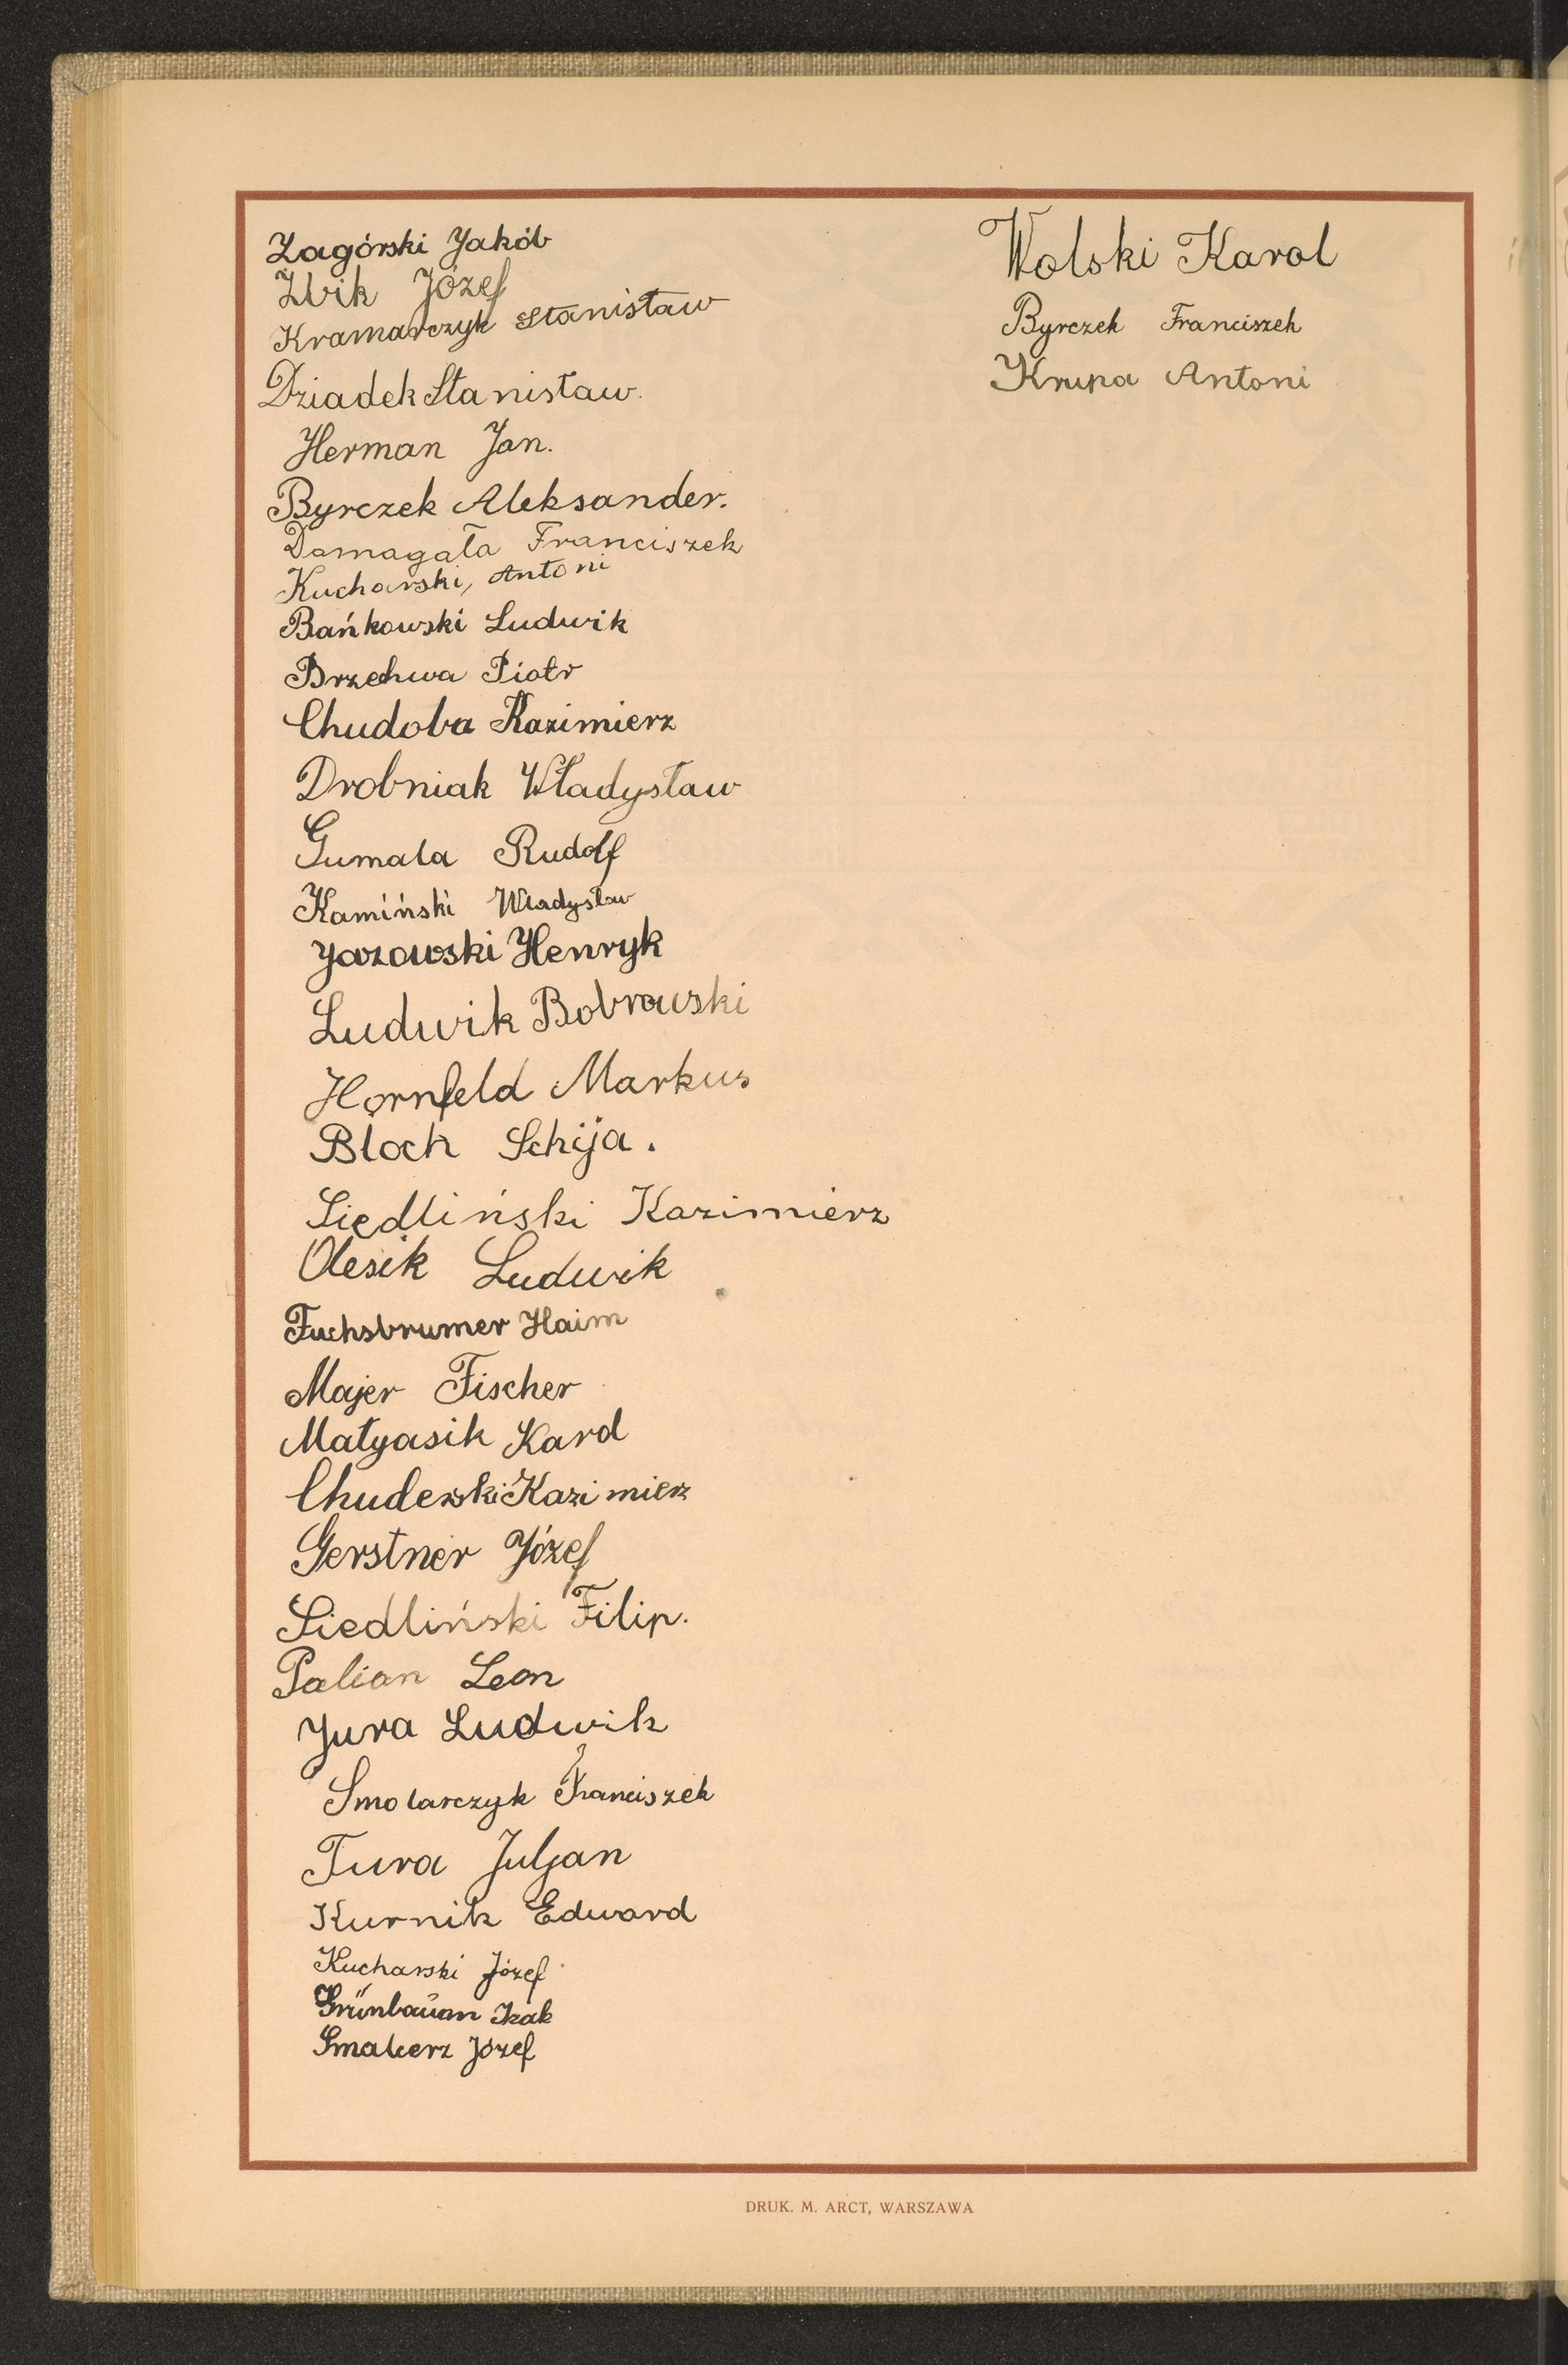 Zagórski Jakób
Żbik Józef
Kramarczyk Stanisław
Dziadek Stanisław.
Herman Jan.
Byrczek Aleksander.
Domagała Franciszek
Kucharski, Antoni
Bańkowski Ludwik
Brzechwa Piotr
Chudoba Kazimierz
Drobniak Władysław
Gumala Rudolf
Kamiński Władysław
Jazowski Henryk
Ludwik Bobrowski
Hornfeld Markus
Bloch Schija.
Siedliński Kazimierz
Olesik Ludwik
Fuchsbrumer Haim
Majer Fischer
Małyasik Karol
Chuderski Kazimierz
Gerstner Józef
Siedliński Filip.
Palian Leon
Jura Ludwik
Smolarczyk Franciszek
Tura Juljan
Kurnik Edward
Kucharski Józef
Grünbaum Izak
Smalcerz Józef
Wolski Karol
Byrczek Franciszek
Krupa Antoni
DRUK. M. ARCT, WARSZAWA